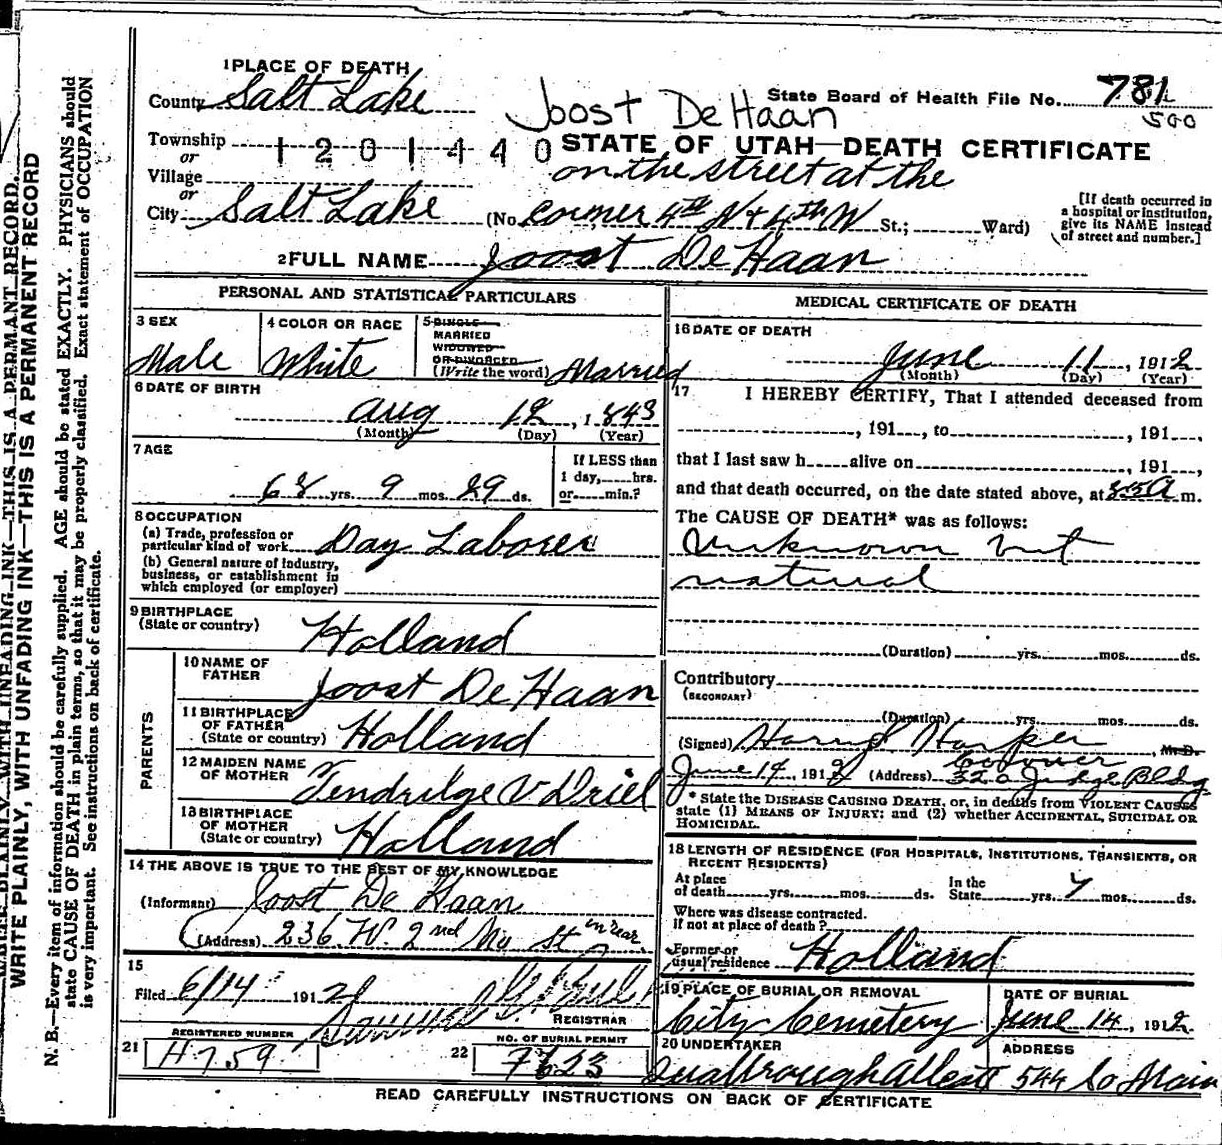 1 PLACE OF DEATH
County Salt Lake
Joost De Haan
State Board of Health File No. 781
500
Township 1201440
or
Village
or
STATE OF UTAH—DEATH CERTIFICATE
on the street at the
City Salt Lake (No. corner 4th N + 4th W St.; Ward)
[If death occurred in
a hospital or institution,
give its NAME instead
of street and number.]
2 FULL NAME Joost De Haan
PERSONAL AND STATISTICAL PARTICULARS
3 SEX
Male
4 COLOR OR RACE
White
5 SINGLE
MARRIED
WIDOWED
OR DIVORCED
(Write the word) Married
6 DATE OF BIRTH
Aug 12, 1843
(Month) (Day) (Year)
7 AGE
68 yrs. 9 mos. 29 ds.
If LESS than
1 day, hrs.
or min.?
8 OCCUPATION
(a) Trade, profession or
particular kind of work Day Laborer
(b) General nature of industry,
business, or establishment in
which employed (or employer)
9 BIRTHPLACE
(State or country) Holland
PARENTS
10 NAME OF
FATHER Joost De Haan
11 BIRTHPLACE
OF FATHER
(State or country) Holland
12 MAIDEN NAME
OF MOTHER V Driel
13 BIRTHPLACE
OF MOTHER
(State or country) Holland
14 THE ABOVE IS TRUE TO THE BEST OF MY KNOWLEDGE
(Informant) Joost De Haan
(Address) 236 W. 2nd No St in rear
15
Filed 6/14 1912
REGISTRAR
21 REGISTERED NUMBER
H759
22 NO. OF BURIAL PERMIT
7623
MEDICAL CERTIFICATE OF DEATH
16 DATE OF DEATH
June 11, 1912
(Month) (Day) (Year)
17 I HEREBY CERTIFY, That I attended deceased from
, 191 , to , 191 ,
that I last saw h alive on , 191 ,
and that death occurred, on the date stated above, at A m.
The CAUSE OF DEATH* was as follows:
Unknown but
natural
(Duration) yrs. mos. ds.
Contributory
(SECONDARY)
(Duration) yrs. mos. ds.
(Signed) Harry Harper, M.D.
Coroner
June 14, 1912 (Address) 320 Judge Bldg
* State the DISEASE CAUSING DEATH, or, in deaths from VIOLENT CAUSES
state (1) MEANS OF INJURY; and (2) whether ACCIDENTAL, SUICIDAL OR
HOMICIDAL.
18 LENGTH OF RESIDENCE (FOR HOSPITALS, INSTITUTIONS, TRANSIENTS, OR
RECENT RESIDENTS)
At place
of death yrs. mos. ds.
In the
State yrs. 7 mos. ds.
Where was disease contracted.
if not at place of death?
Former or
usual residence Holland
19 PLACE OF BURIAL OR REMOVAL
City Cemetery
DATE OF BURIAL
June 14, 1912
20 UNDERTAKER
ADDRESS
544 So Main
READ CAREFULLY INSTRUCTIONS ON BACK OF CERTIFICATE
WRITE PLAINLY, WITH UNFADING INK—THIS IS A PERMANENT RECORD
N. B.—Every item of information should be carefully supplied. AGE should be stated EXACTLY. PHYSICIANS should
state CAUSE OF DEATH in plain terms, so that it may be properly classified. Exact statement of OCCUPATION
is very important. See instructions on back of certificate.